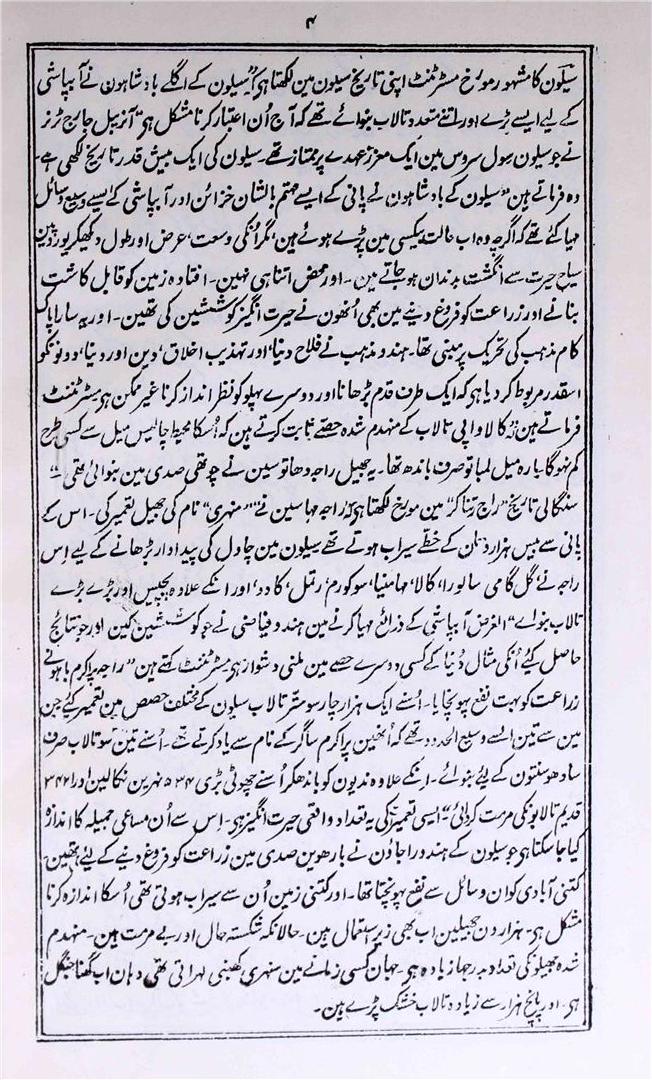 ۴
سیلون کا مشہور مورخ مسٹر ٹننٹ اپنی تاریخ سیلون مین لکھتا ہو کہ "سیلون کے اگلے بادشاہون نے آبپاشی
کے لیے ایسے بڑے اور اتنے متعدد تالاب بنوائے تھے کہ آج اُن اعتبار کرنا مشکل ہی" آنریبل جارج ٹرنر
نے جو سیلون سول سروس مین ایک معزز عہدے پر ممتاز تھے۔ سیلون کی ایک بیش قدر تاریخ لکھی ہے۔
وہ فرماتے ہین "سیلون کے بادشاہون نے پانی کے ایسے مہتم بالشان خزائن اور آبپاشی کے ایسے وسیع وسائل
مہیا کئے تھے کہ اگرچہ وہ اب حالت بیکسی مین پڑے ہوئے ہین، مگر اُنکی وسعت، عرض اور طول دیکھکر یورپین
سیاح حیرت سے انگشت بدندان ہو جاتے ہین۔ اور محض اتنا ہی نہین۔ افتادہ زمین کو قابل کاشت
بنانے اور زراعت کو فروغ دینے مین بھی اُنھون نے حیرت انگیز کوششین کی تھین۔ اور یہ سارا پاک
کام مذہب کی تحریک پر مبنی تھا۔ ہندو مذہب نے فلاح دنیا، اور تہذیب اخلاق، دین اور دنیا، دونونکو
اسقدر مربوط کر دیا ہو کہ ایک طرف قدم بڑھانا اور دوسرے پہلو کو نظر انداز کرنا غیر ممکن ہو مسٹر ٹننٹ
فرماتے ہین "کالاواپی تالاب کے منہدم شدہ حصے ثابت کرتے ہین کہ اُسکا محیط چالیس میل سے کسی طرح
کم نہوگا بارہ میل لمبا تو صرف باندھ تھا۔ یہ جھیل راجہ دھاتوسین نے چوتھی صدی مین بنوائی تھی"
سنگالی تاریخ "راج رتناکر" مین مورخ لکھتا ہو کہ راجہ مہاسین نے "منہری" نام کی جھیل تعمیر کی۔ اس کے
پانی سے بیس ہزار دہان کے خطے سیراب ہوتے تھے سیلون مین چاول کی پیداوار بڑھانے کے لیے اِس
راجہ نے، گل گامی سالورا، کالا، مہامنیا، سوکورم، رتمل، کادد، اور انکے علاوہ پچیس اور بڑے بڑے
تالاب بنوائے" الغرض آبپاشی کے ذرائع مہیا کرنے مین ہندو فیاضی نے جو کوششین کین اور جو نتائج
حاصل کیے اُنکی مثال دُنیا کے کسی دوسرے حصے مین ملنی دشوار ہو مسٹر ٹننٹ کہتے ہین "راجہ پراکرم باہو نے
زراعت کو بہت نفع پہونچایا۔ اُسنے ایک ہزار چار سو ستر تالاب سیلون کے مختلف حصص مین تعمیر کیے جن
مین سے تین ایسے وسیع الحدود تھے کہ اُنھین پراکرم ساگر کے نام سے یاد کرتے تھے۔ اُسنے تین سو تالاب صرف
سادھو سنتون کے لئے بنوائے۔ انکے علاوہ ندیون کو باندھکر اُسنے چھوٹی بڑی ۵۳۴ نہرین نکالین اور ۳۴۲۱
قدیم تالابونکی مرمت کروائی"۔ ایسی تعمیر کی یہ تعداد واقعی حیرت انگیز ہو۔ اِس سے اُن مساعی جمیلہ کا اندازہ
کیا جا سکتا ہو جو سیلون کے ہندو راجاؤن نے بارھوین صدی مین زراعت کو فروغ دینے کے لئے کی تھین
کتنی آبادی کو ان وسائل سے نفع پہونچتا تھا۔ اور کتنی زمین اُن سے سیراب ہوتی تھی اُسکا اندازہ کرنا
مشکل ہو۔ ہزارون جھیلین اب بھی زیر استعمال ہین۔ حالانکہ شکستہ حال اور بے مرمت ہین۔ منہدم
شدہ جھیلونکی تعداد بدرجہا زیادہ ہو۔ جہان کسی زمانے مین سنہری کھیتی لہراتی تھی وہان اب گھنا جنگل
ہو۔ اور پانچ ہزار سے زیادہ تالاب خشک پڑے ہین۔